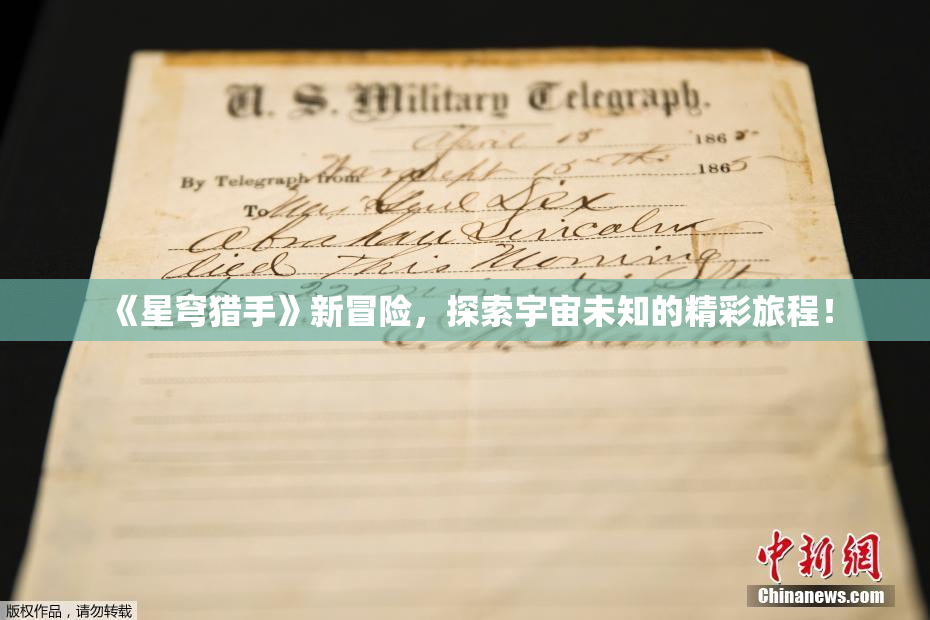 U. S. Military Telegraph.
April 15 1865
By Telegraph from War Dept 15th 1865
To Maj Genl Dix
Abraham Lincoln
died This Morning
22 minutes after
《星穹猎手》新冒险，探索宇宙未知的精彩旅程！
E. M. Stanton
中新网
Chinanews.com
版权作品，请勿转载